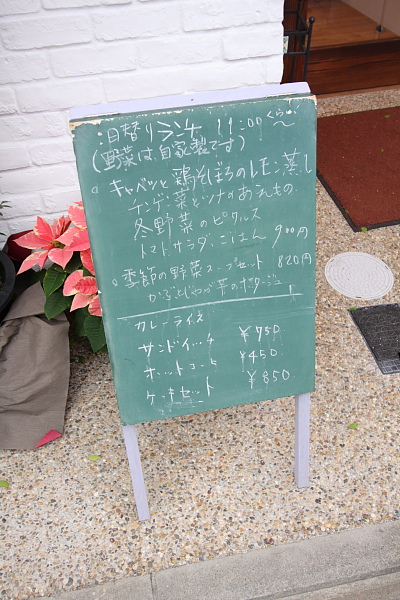 日替りランチ 11:00くらい〜
(野菜は自家製です)
キャベツと鶏そぼろのレモン蒸し
チンゲン菜とツナのあえもの
冬野菜のピクルス
トマトサラダ、ごはん 900円
季節の野菜スープセット 820円
かぶとじゃが芋のポタージュ
カレーライス
サンドイッチ ¥750.
ホットコート ¥450.
ケーキセット ¥850.